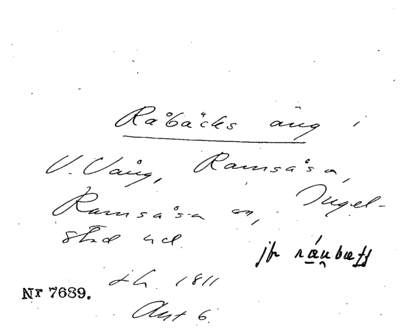 Råbäcks äng i
V. Vång, Ramsåsa,
Ramsåsa sn, Ingel-
stad hd.
jfr
Nr 7689.
LH. 1811
Akt 6